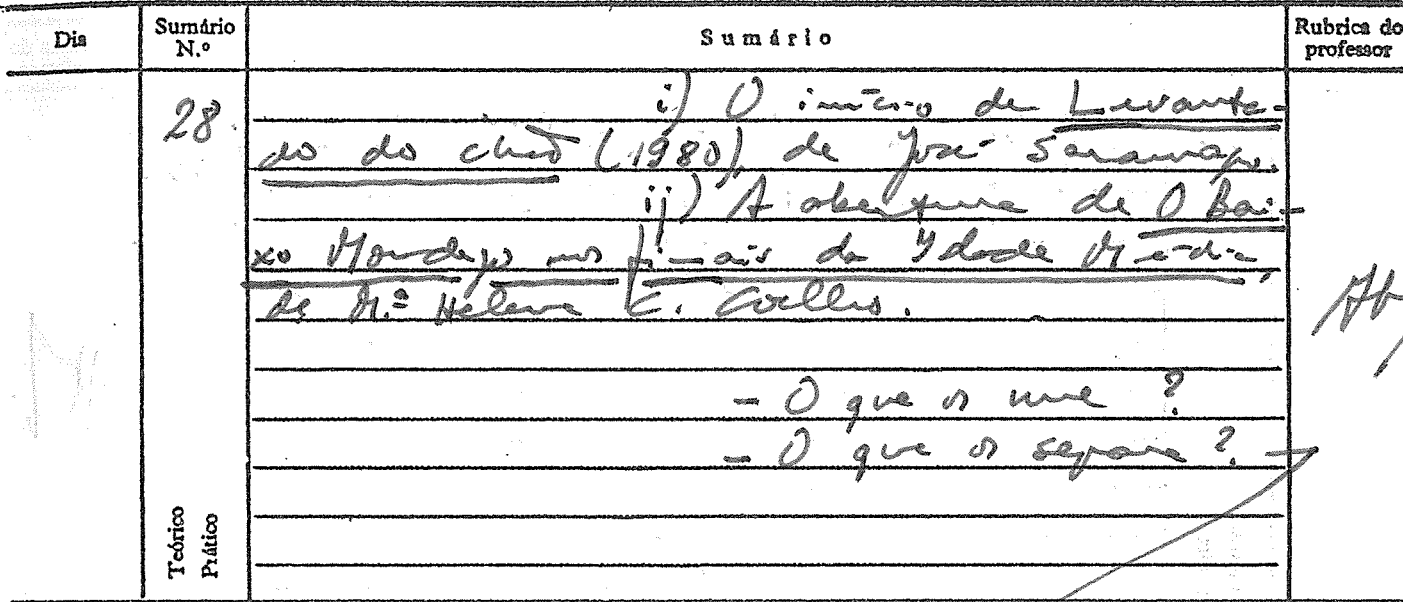 Dia
Sumário N.º
Sumário
Rubrica do professor
28.
i) O início de Levanta-
do do chão (1980), de José Saramago.
ii) A abertura de O Bai-
xo Mondego nos finais da Idade Média,
de M.ª Helena C. Coelho.
- O que os une ?
- O que os separa ?
Teórico
Prático